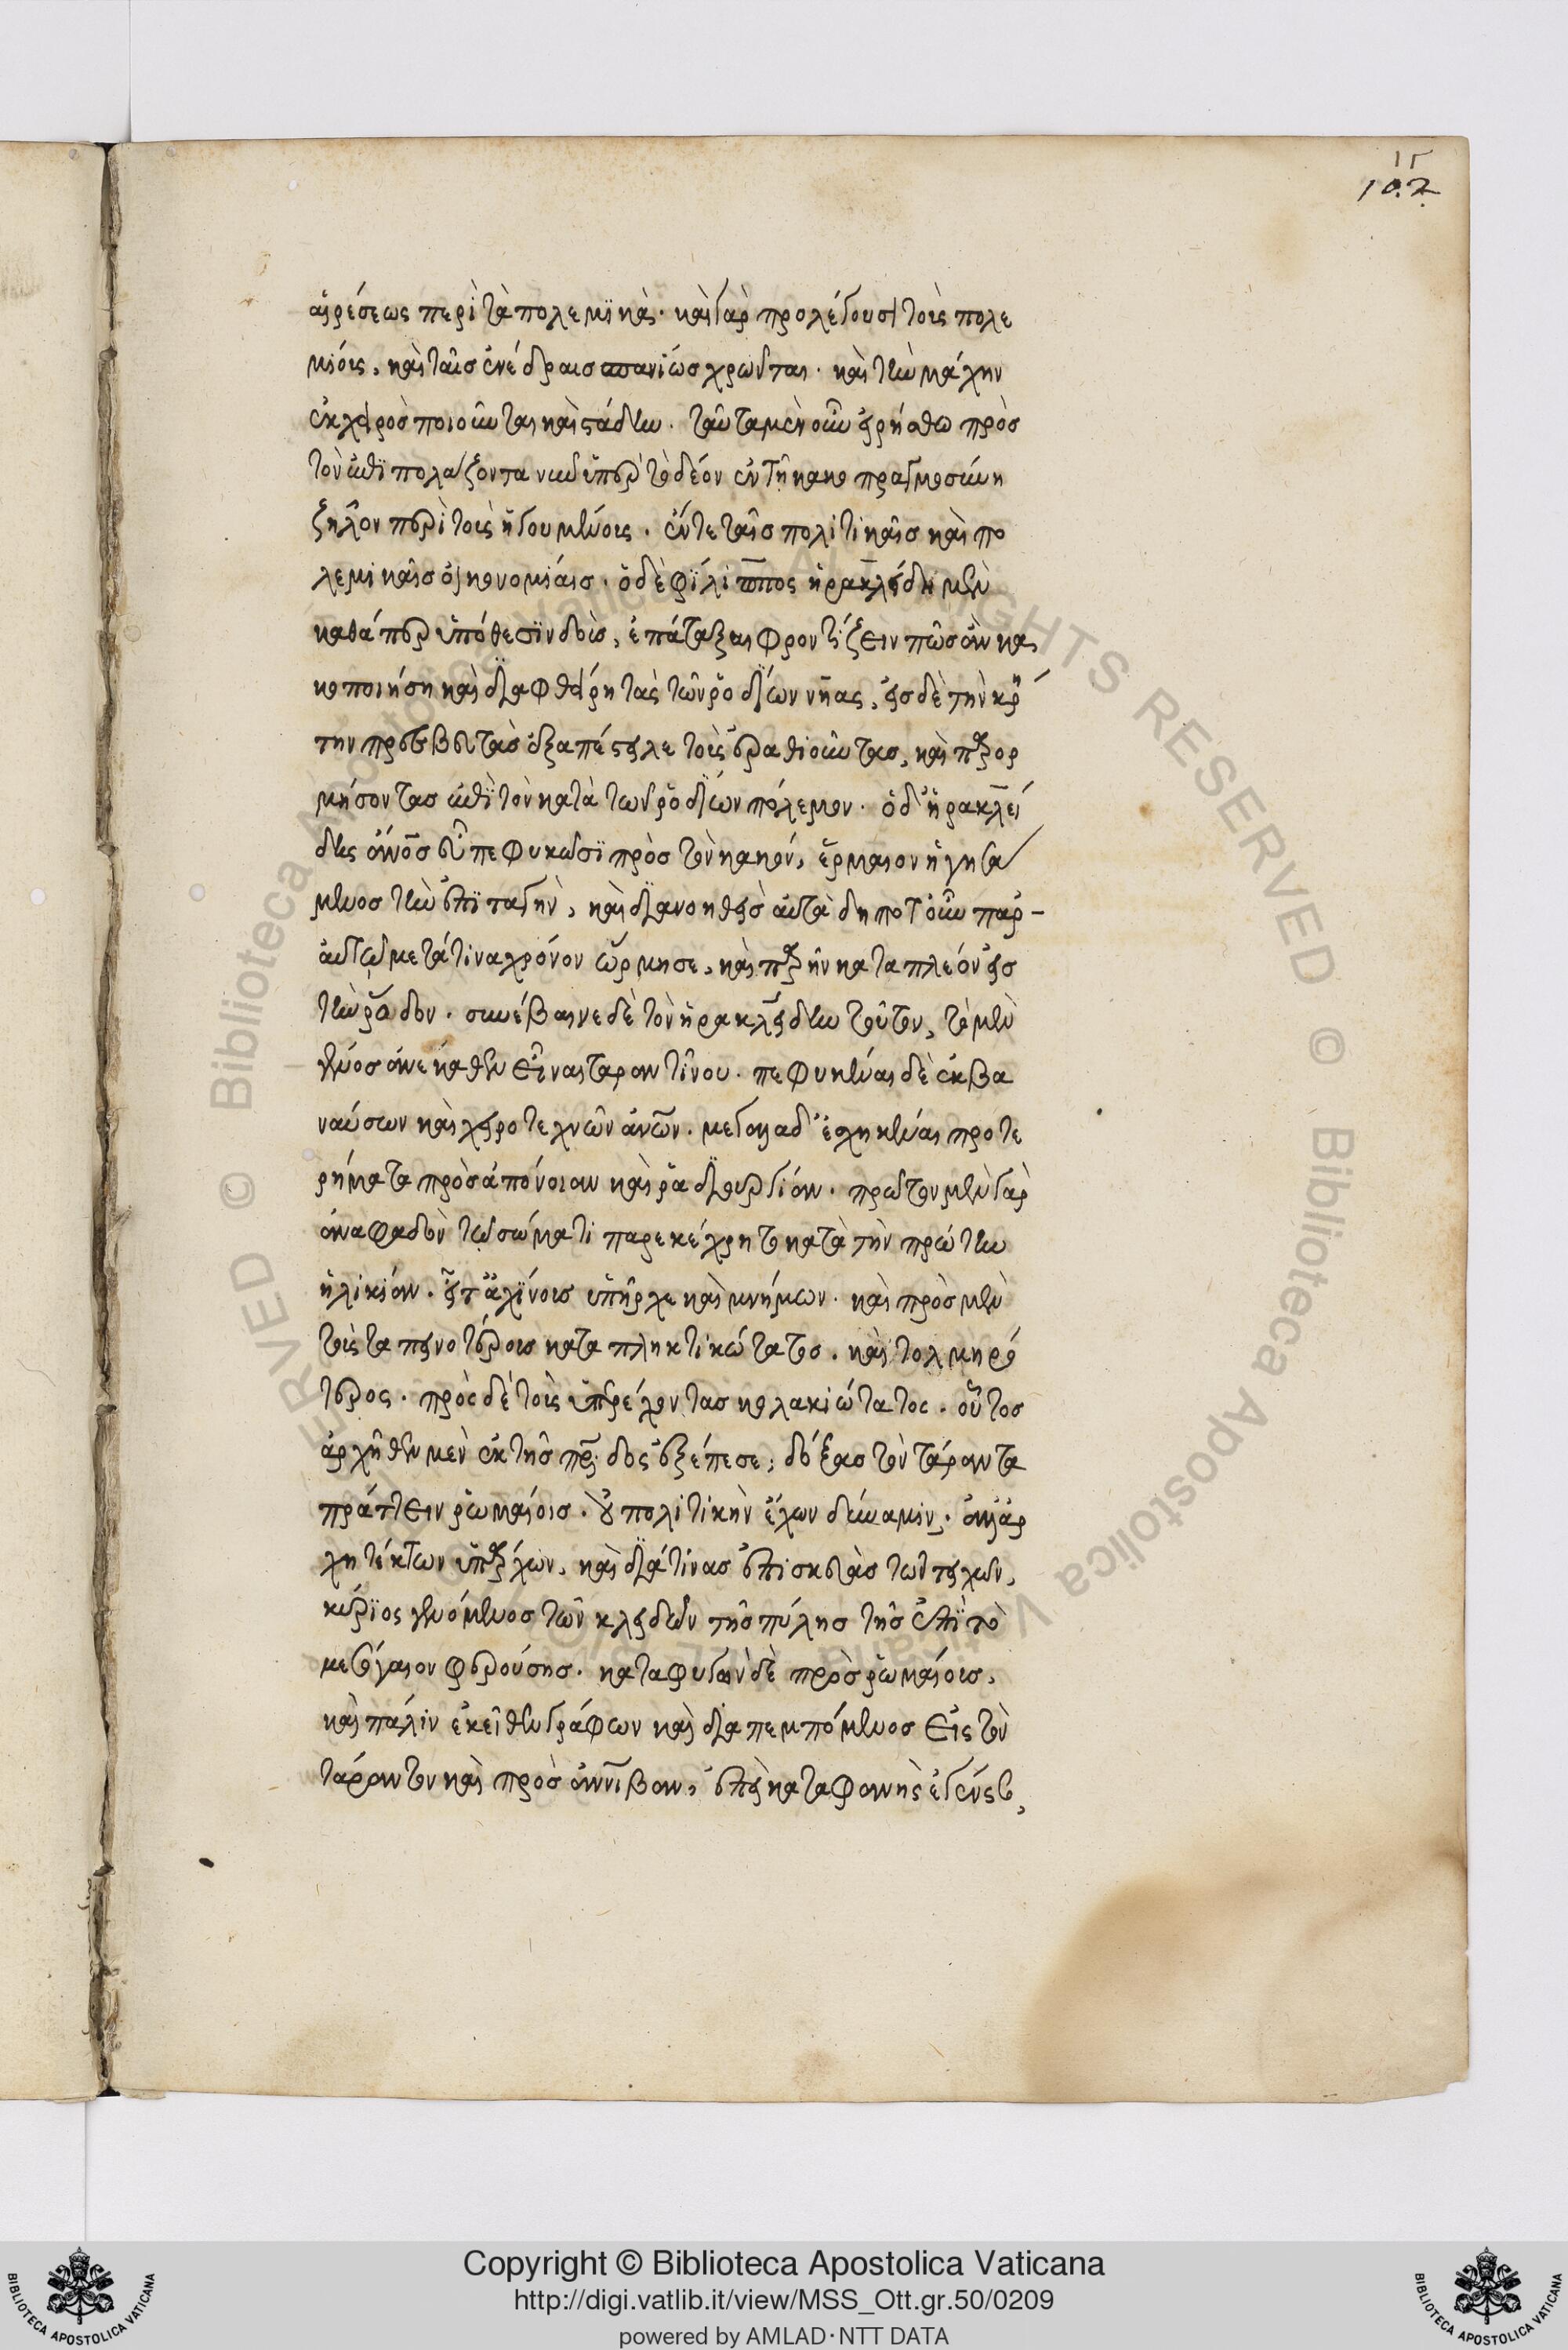 102
αἱρέσεως περὶ τὰ πολεμϊκὰ. καὶ γὰρ προλέγουσι τοῖς πολε
μίοις, καὶ ταῖς ἐνέδραις σπανίως χρῶνται. καὶ τὴν μάχην
ἐκ χειρὸς ποιοῦνται καὶ στάδην. ταῦτα μὲν οὖν εἰρήσθω πρὸς
τὸν ἐπϊπολάζοντα νῦν ὑπὲρ τὸ δέον ἐν τῇ κακοπραγμοσύνῃ
ζῆλον περὶ τοὺς ἡγουμένους. ἔν τε ταῖς πολιτικαῖς καὶ πο
λεμικαῖς οἰκονομίαις. ὁ δὲ φίλιππος ἡρακλείδῃ μὲν
καθάπερ ὑπόθεσϊν δοὺς, ἐπάταξαι φροντίζειν πῶς ἂν κα
κοποιήσῃ καὶ διαφθείρῃ τὰς τῶν ῥοδίων νῆας, εἰς δὲ τὴν κρή
την πρεσβευτὰς ἐξαπέστειλε τοὺς ἐραθιοῦντας, καὶ παρορ
μήσοντας ἐπϊ τὸν κατὰ τῶν ῥοδίων πόλεμον. ὁ δ' ἡρακλεί
δης ἄνος εὖ πεφυκὼσϊ πρὸς τὸν κακὸν, ἕρμαιον ἡγησά
μενος τὴν ἐπϊταγὴν, καὶ διανοηθεὶς αὐτὰ δήποτ' οὖν παρ-
αὐτῷ μετά τινα χρόνον ὥρμησε, καὶ παρῆν καταπλέον εἰς
τὴν ῥόδον. συνέβαινε δὲ τὸν ἡρακλείδην τοῦτον, τὸ μὲν
γένος ἀνέκαθεν εἶναι ταραντῖνον. πεφυκέναι δὲ ἐκ βα
ναύσων καὶ χειροτεχνῶν ἀνων. μεγάλα δ' ἐσχηκέναι προτε
ρήματα πρὸς ἀπόνοιαν καὶ ῥαδιουργίαν. πρῶτον μὲν γὰρ
ἀναφαδὸν τῷ σώματι παρεκέχρητο κατὰ τὴν πρώτην
ἡλικίαν. εἶτ' ἀγχίνους ὑπῆρχε καὶ μνήμων. καὶ πρὸς μὲν
τοὺς ταπεινοτέρους καταπληκτικώτατος. καὶ τολμηρό
τερος. πρὸς δὲ τοὺς ὑπερέχοντας κολακιώτατος. οὗτος
ἀρχῆθεν μὲν ἐκ τῆς πρίδος ἐξέπεσε, δόξας τὸν τάραντα
πράττειν ῥωμαίοις. οὐ πολιτικὴν ἔχων δύναμιν. ἀλλ' ἀρ
χητέκτων ὑπάρχων, καὶ διά τινας ἐπισκευὰς τῶν τειχῶν,
κύριος γενόμενος τῶν κλειδῶν τῆς πύλης τῆς ἐπϊ τὸ
μεσόγαιον φερούσης. καταφυγὼν δὲ πρὸς ῥωμαίους,
καὶ πάλιν ἐκεῖθεν γράφων καὶ διαπεμπόμενος εἰς τὸν
τάραντον καὶ πρὸς ἀννίβαν, ἐπεὶ καταφανὴς ἐγένετο,
Copyright © Biblioteca Apostolica Vaticana
http://digi.vatlib.it/view/MSS_Ott.gr.50/0209
powered by AMLAD·NTT DATA